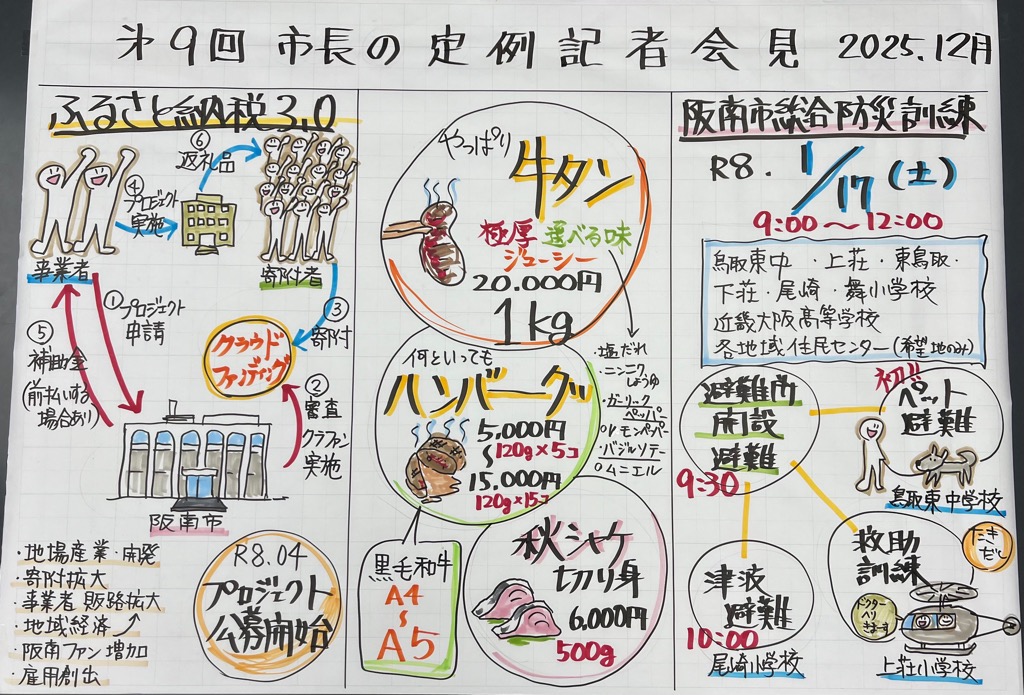 第9回 市長の定例記者会見 2025.12月
ふるさと納税3.0
⑥
返礼品
④
プロジェクト
実施
事業者
寄付者
①プロジェクト
申請
③
寄付
⑤
補助金
(前払いする
場合あり)
クラウド
ファンディング
②
審査
クラファン
実施
阪南市
・地場産業・開発
・寄付拡大
・事業者 販路拡大
・地域経済↗
・阪南ファン増加
・雇用創出
R8.04
プロジェクト
公募開始
やっぱり
牛タン
極厚 選べる味
ジューシー
20.000円
1kg
・塩だれ
・ニンニク
しょうゆ
・ガーリック
ペッパー
・レモンペパー
・バジルソテー
・ムニエル
何といっても
ハンバーグ
5,000円
120g×5コ
〜
15,000円
120g×15コ
黒毛和牛
A4
〜
A5
秋シャケ
切り身
6,000円
500g
阪南市総合防災訓練
R8. 1/17 (土)
9:00〜12:00
鳥取東中・上荘・東鳥取・
下荘・尾崎・舞小学校
近畿大阪高等学校
各地域住民センター(希望地のみ)
避難所
開設
避難
9:30
初!!
ペット
避難
鳥取東中学校
津波
避難
10:00
尾崎小学校
救助
訓練
たき
だし
ドクター
ヘリ
きまーす
上荘小学校